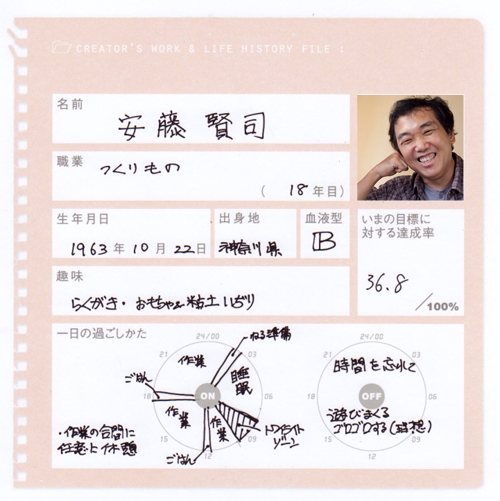 CREATOR'S WORK & LIFE HISTORY FILE :
名前
安藤 賢司
職業
つくりもの
(18年目)
生年月日
1963年10月22日
出身地
神奈川県
血液型
B
いまの目標に
対する達成率
36.8
/100%
趣味
らくがき・おもちゃと粘土いぢり
一日の過ごしかた
24/00
21
03
18
06
15
09
12
ON
ねる準備
作業
睡眠
ごはん
作業
作業
トワイライト
ゾーン
ごはん
・作業の合間に
任意に休頭
24/00
21
03
18
06
15
09
12
OFF
時間を忘れて
遊びまくる
ゴロゴロする(理想)